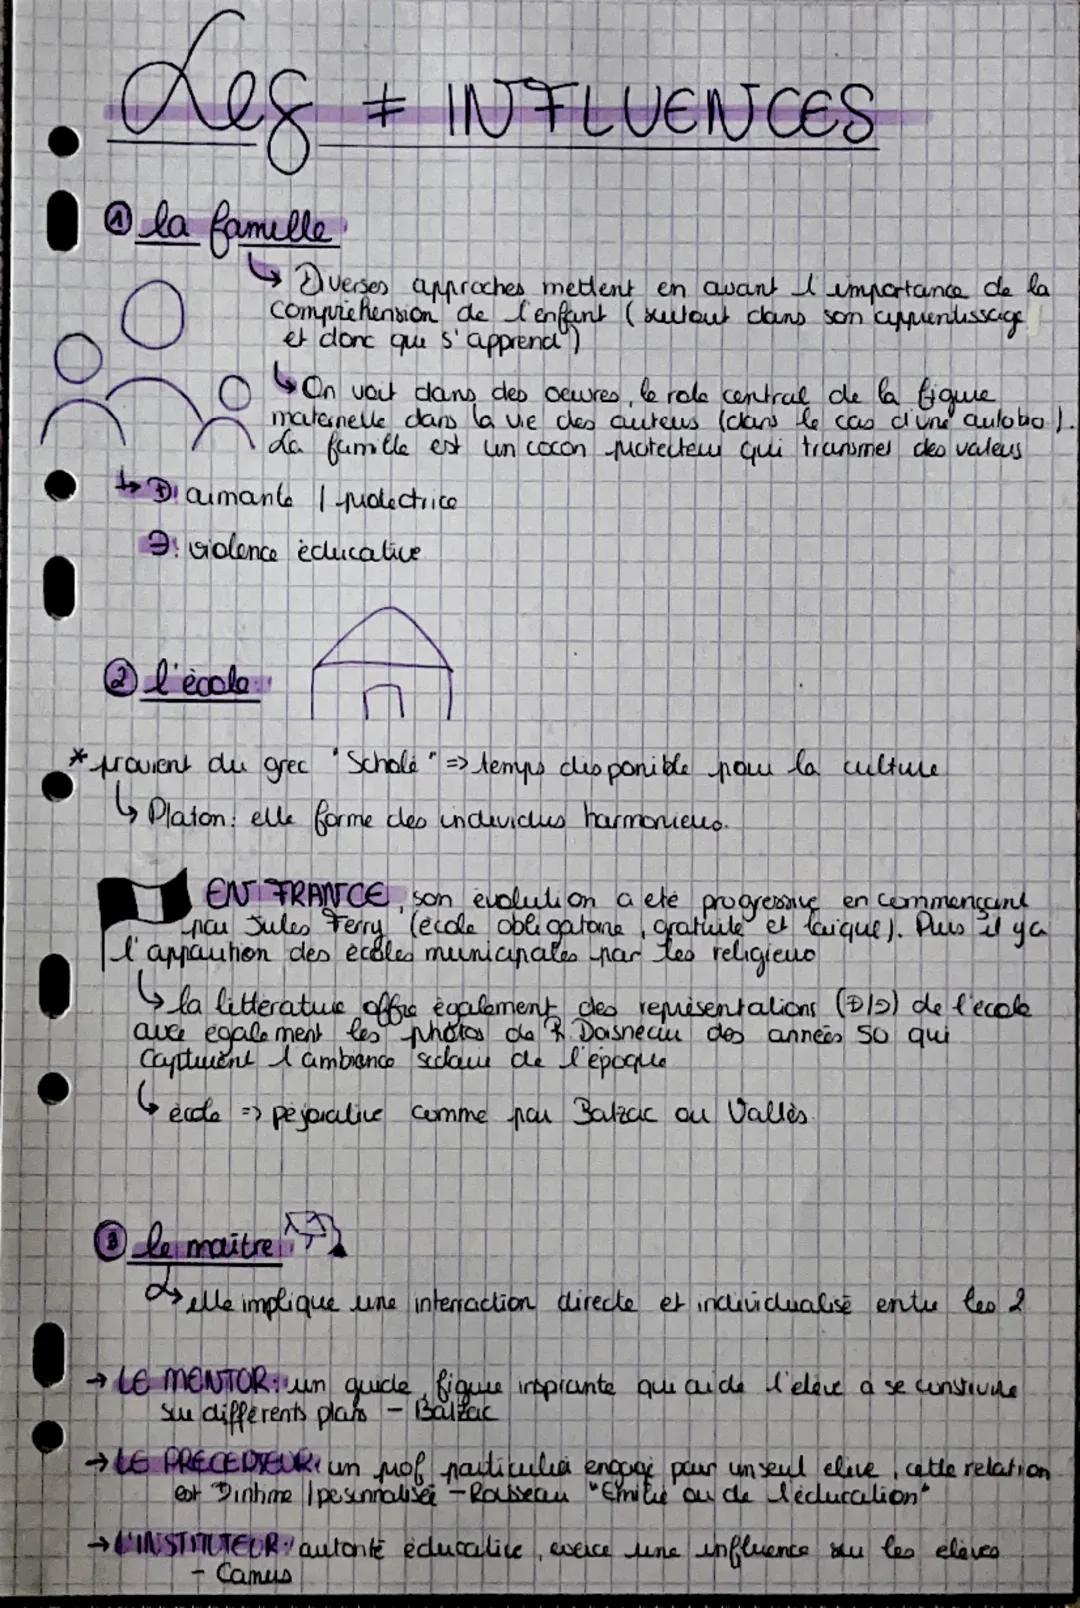 Les ≠ INFLUENCES
① la famille
↳ Diverses approches mettent en avant l'importance de la
compréhension de l'enfant (surtout dans son apprentissage
et donc qui s'apprend")
↳ On voit dans des oeuvres, le role central de la figure
maternelle dans la vie des auteurs (dans le cas d'une autobio).
La famille est un cocon protecteur qui transmet des valeurs
↳ ⊕: aimante / protectrice
⊖: violence éducative
② l'école
* provient du grec "Scholé" => temps disponible pour la culture
↳ Platon: elle forme des individus harmonieux.
EN FRANCE, son évolution a été progressive en commençant
par Jules Ferry (école obligatoire, gratuite et laïque). Puis il y a
l'apparition des écoles municipales par les religieux
↳ la littérature offre également des représentations (⊕/⊖) de l'école
avec également les photos de R. Doisneau des années 50 qui
capturent l'ambiance scolaire de l'époque
↳ école => péjorative comme par Balzac ou Vallès.
③ le maître
↳ elle implique une interraction directe et individualisé entre les 2
→ LE MENTOR: un guide, figure inspirante qui aide l'élève a se construire
sur différents plans - Balzac
→ LE PRECEPTEUR: un prof particulier engagé pour un seul élève, cette relation
est + intime / personnalisée - Rousseau "Emile ou de l'éducation"
→ L'INSTITUTEUR: autorité éducative, exerce une influence sur les élèves
- Camus